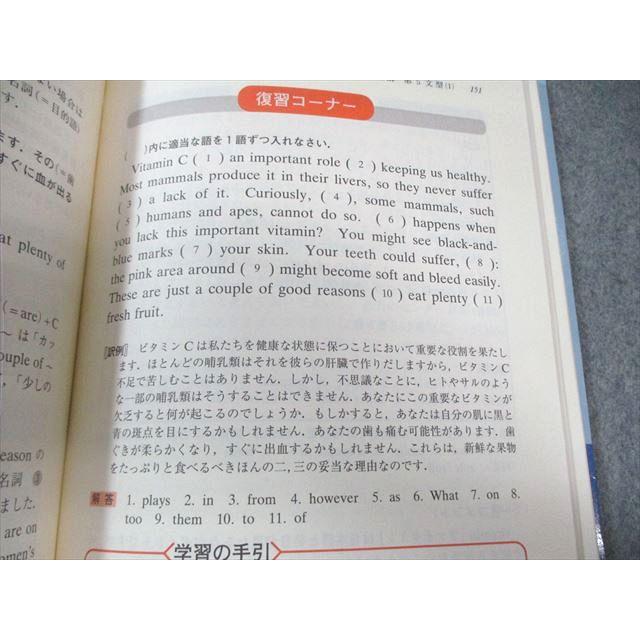 ない場合は
名詞(=目的語)
す.
第5文型(1) 151
復習コーナー
ます. その(=歯
すぐに血が出る
( )内に適当な語を1語ずつ入れなさい.
Vitamin C ( 1 ) an important role ( 2 ) keeping us healthy.
Most mammals produce it in their livers, so they never suffer
( 3 ) a lack of it. Curiously, ( 4 ), some mammals, such
( 5 ) humans and apes, cannot do so. ( 6 ) happens when
you lack this important vitamin? You might see black-and-
blue marks ( 7 ) your skin. Your teeth could suffer, ( 8 ):
the pink area around ( 9 ) might become soft and bleed easily.
These are just a couple of good reasons ( 10 ) eat plenty ( 11 )
fresh fruit.
eat plenty of
(=are)+C
〜は「カッ
couple of〜
,「少しの
[訳例] ビタミンCは私たちを健康な状態に保つことにおいて重要な役割を果たし
ます. ほとんどの哺乳類はそれを彼らの肝臓で作りだしますから, ビタミンC
不足で苦しむことはありません. しかし, 不思議なことに, ヒトやサルのよう
な一部の哺乳類はそうすることはできません. あなたにこの重要なビタミンが
欠乏すると何が起こるのでしょうか. もしかすると, あなたは自分の肌に黒と
青の斑点を目にするかもしれません. あなたの歯も痛む可能性があります. 歯
ぐきが柔らかくなり, すぐに出血するかもしれません. これらは, 新鮮な果物
をたっぷりと食べるべきほんの二, 三の妥当な理由なのです.
eason の
名詞 ③
ました.
are on
omen's
解答 1. plays 2. in 3. from 4. however 5. as 6. What 7. on 8.
too 9. them 10. to 11. of
学習の手引